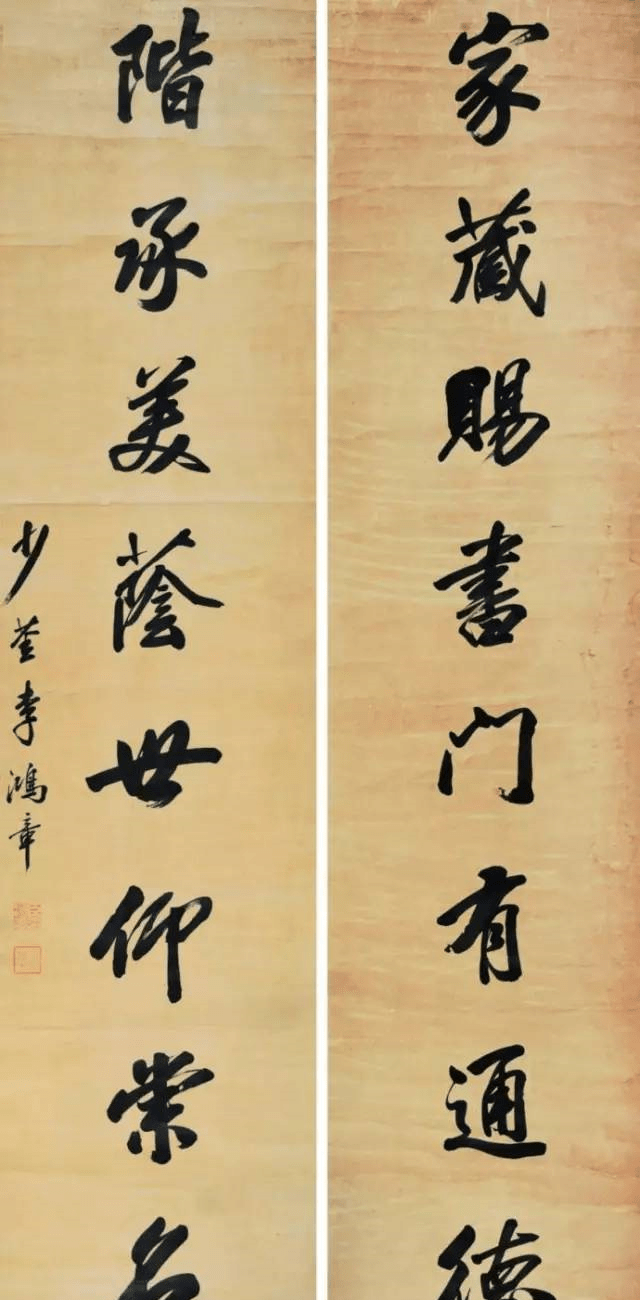 家藏賜書门有通德
階承美蔭世仰崇名
少荃李鴻章